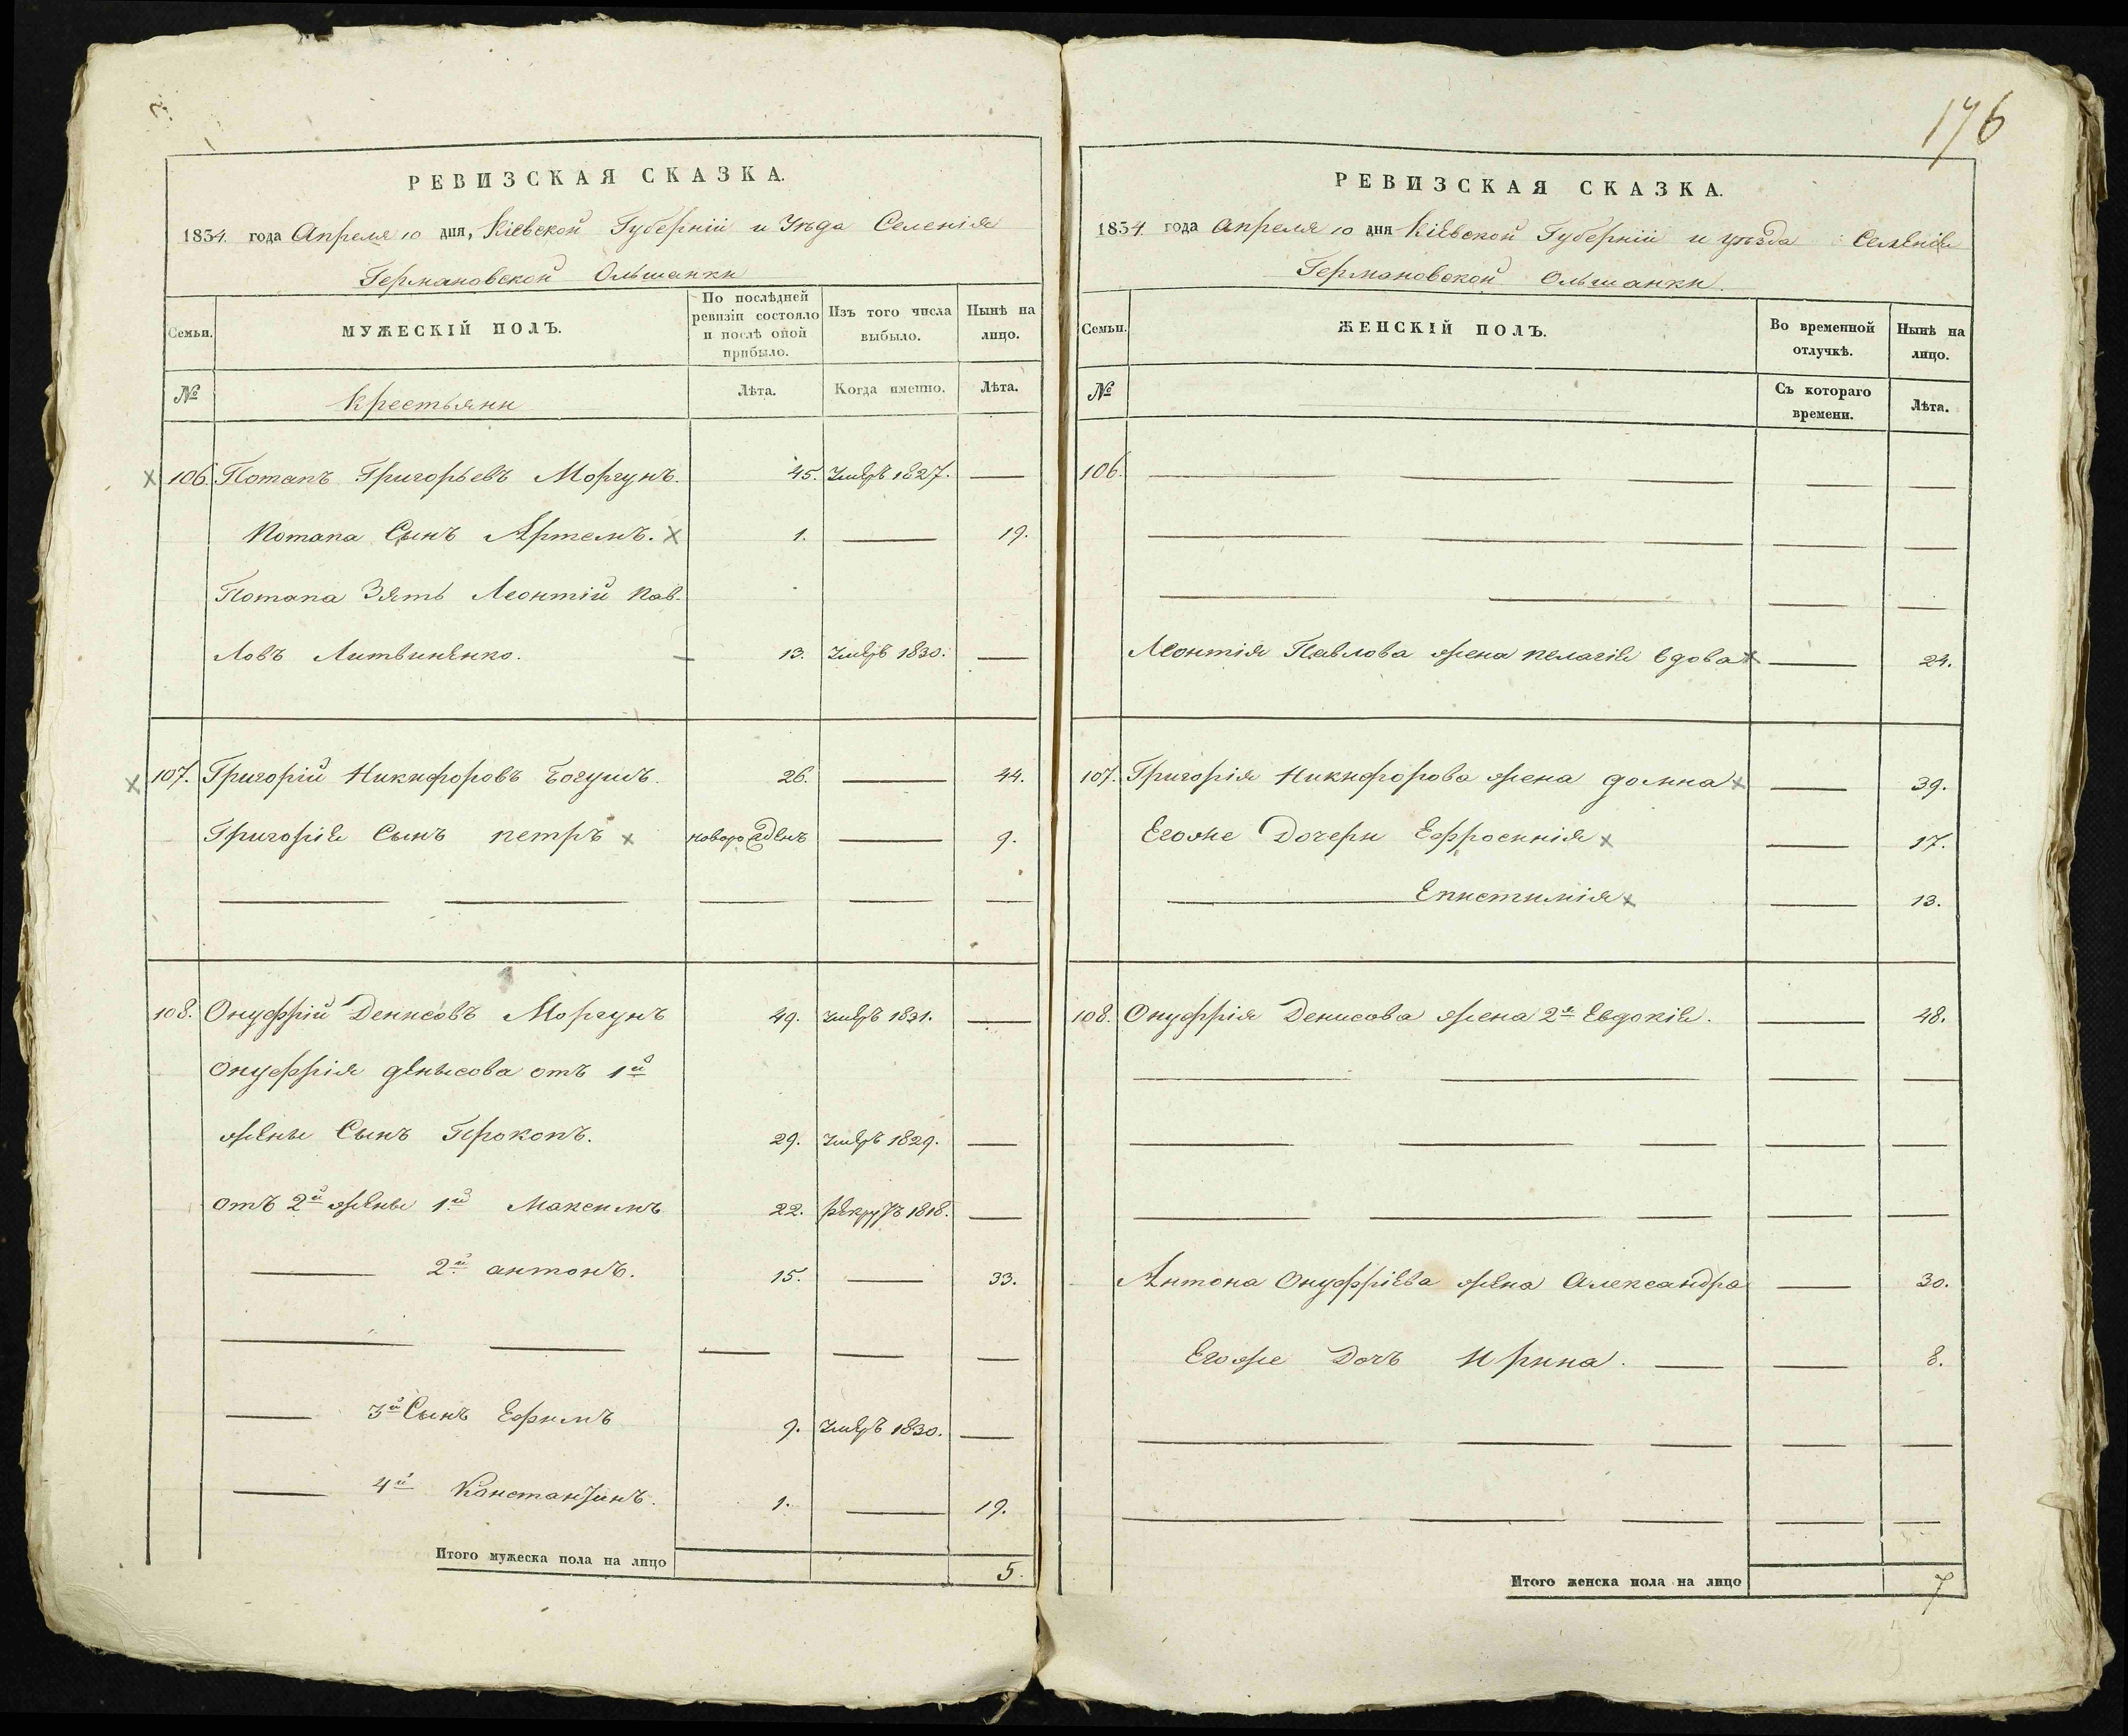 РЕВИЗСКАЯ СКАЗКА.
1834. года Апреля 10 дня, Кіевской Губерніи и Уѣзда Селенія
Германовской Ольшанки
Семьи.
МУЖЕСКІЙ ПОЛЪ.
По послѣдней ревизіи состояло и послѣ оной прибыло.
Изъ того числа выбыло.
Нынѣ на лицо.
№
Крестьяни
Лѣта.
Когда именно.
Лѣта.
106. Потапъ Григорьевъ Моргунъ. 45. Умеръ 1827. —
Потапа Сынъ Артемъ. 1. — 19.
Потапа Зять Леонтій Пав-
ловъ Литвиненко. — 13. Умеръ 1830. —
107. Григорій Никифоровъ Богушъ. 26. — 44.
Григорія Сынъ Петръ новорожденъ — 9.
— — — — —
108. Онуфрій Денисовъ Моргунъ 49. Умеръ 1831. —
Онуфрія Денисова отъ 1й
жены Сынъ Прокопъ. 29. Умеръ 1829. —
отъ 2й жены 1й Максимъ 22. Рекрутъ 1818. —
— 2й Антонъ. 15. — 33.
— — — — —
— 3й Сынъ Ефимъ 9. Умеръ 1830. —
— 4й Константинъ. 1. — 19.
Итого мужеска пола на лицо 5.
176
РЕВИЗСКАЯ СКАЗКА.
1834 года Апреля 10 дня Кіевской Губерніи и уѣзда Селенія
Германовской Ольшанки.
Семьи.
ЖЕНСКІЙ ПОЛЪ.
Во временной отлучкѣ.
Нынѣ на лицо.
№
Съ котораго времени.
Лѣта.
106. — — — — —
— — — — —
— — — —
Леонтія Павлова жена Пелагія вдова — 24.
107. Григорія Никифорова жена Домна — 39.
Егоже Дочери Ефросинія — 17.
— Епистимія — 13.
108. Онуфрія Денисова жена 2я Евдокія. — 48.
— — — —
— — — — —
— — — — —
Антона Онуфріева жена Александра — 30.
Егоже Дочь Ирина. — — 8.
— — — — —
— — — — —
Итого женска пола на лицо 7